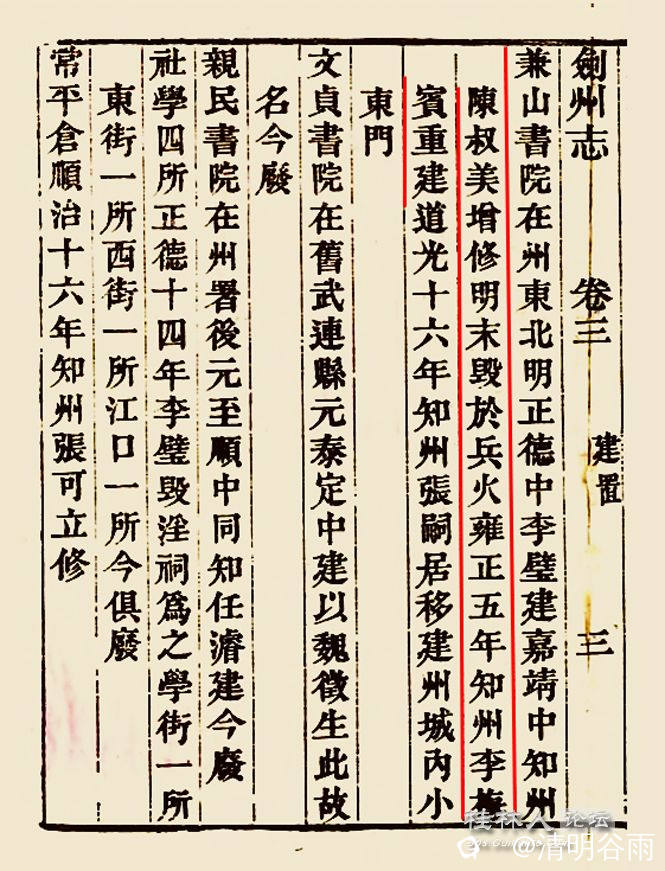 劍州志　卷三　建置　三
兼山書院在州東北明正德中李璧建嘉靖中知州
陳叔美增修明末毀於兵火雍正五年知州李梅
賓重建道光十六年知州張嗣居移建州城內小
東門
文貞書院在舊武連縣元泰定中建以魏徵生此故
名今廢
親民書院在州署後元至順中同知任濬建今廢
社學四所正德十四年李璧毀淫祠為之學街一所
東街一所西街一所江口一所今俱廢
常平倉順治十六年知州張可立修
桂林人论坛
@清明谷雨